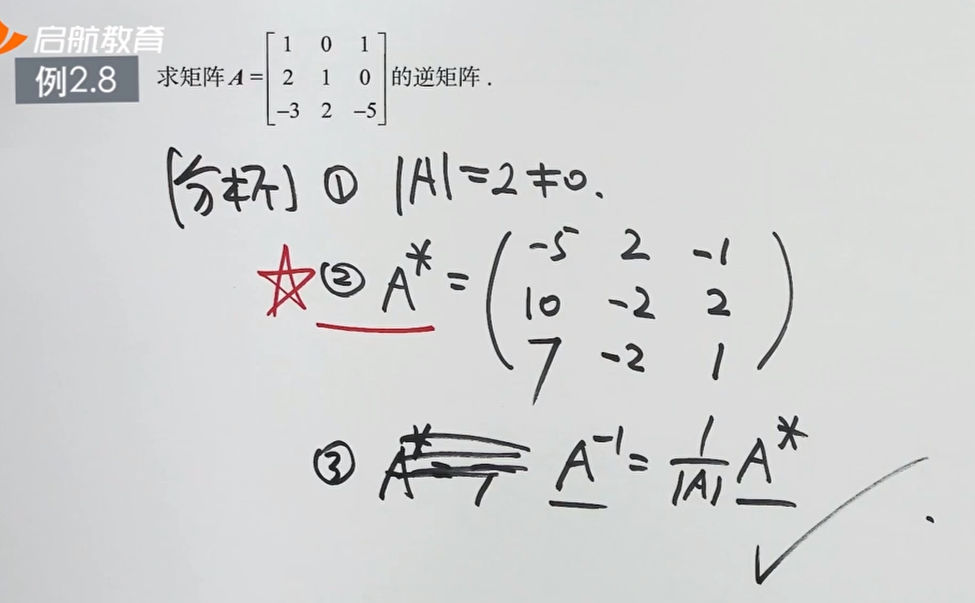 启航教育
例2.8 求矩阵A=[1 0 1
2 1 0
-3 2 -5]的逆矩阵.
[分析] ① |A|=2≠0.
② A*=(-5 2 -1
10 -2 2
7 -2 1)
③ A^-1=1/|A| A*